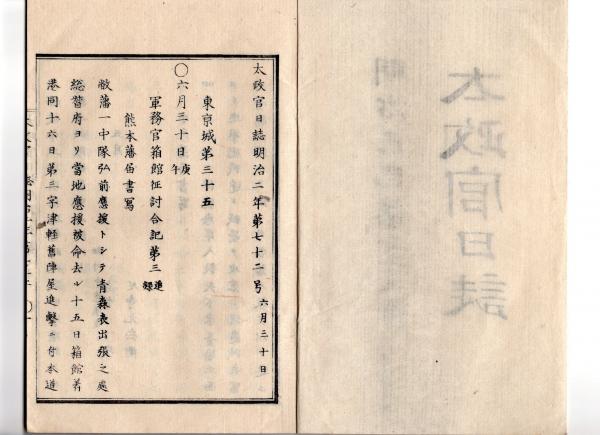 太政官日誌明治二年第七十二号 六月三十日
東京城第三十五
〇六月三十日庚午
軍務官箱館征討合記第三追録
熊本藩届書写
敝藩一中隊弘前應援トシテ青森表出張之處
總督府ヨリ當地應援被命去ル十五日箱館着
港同十六日第三字津軽舊陣屋進撃ニ付本道
太政官日誌